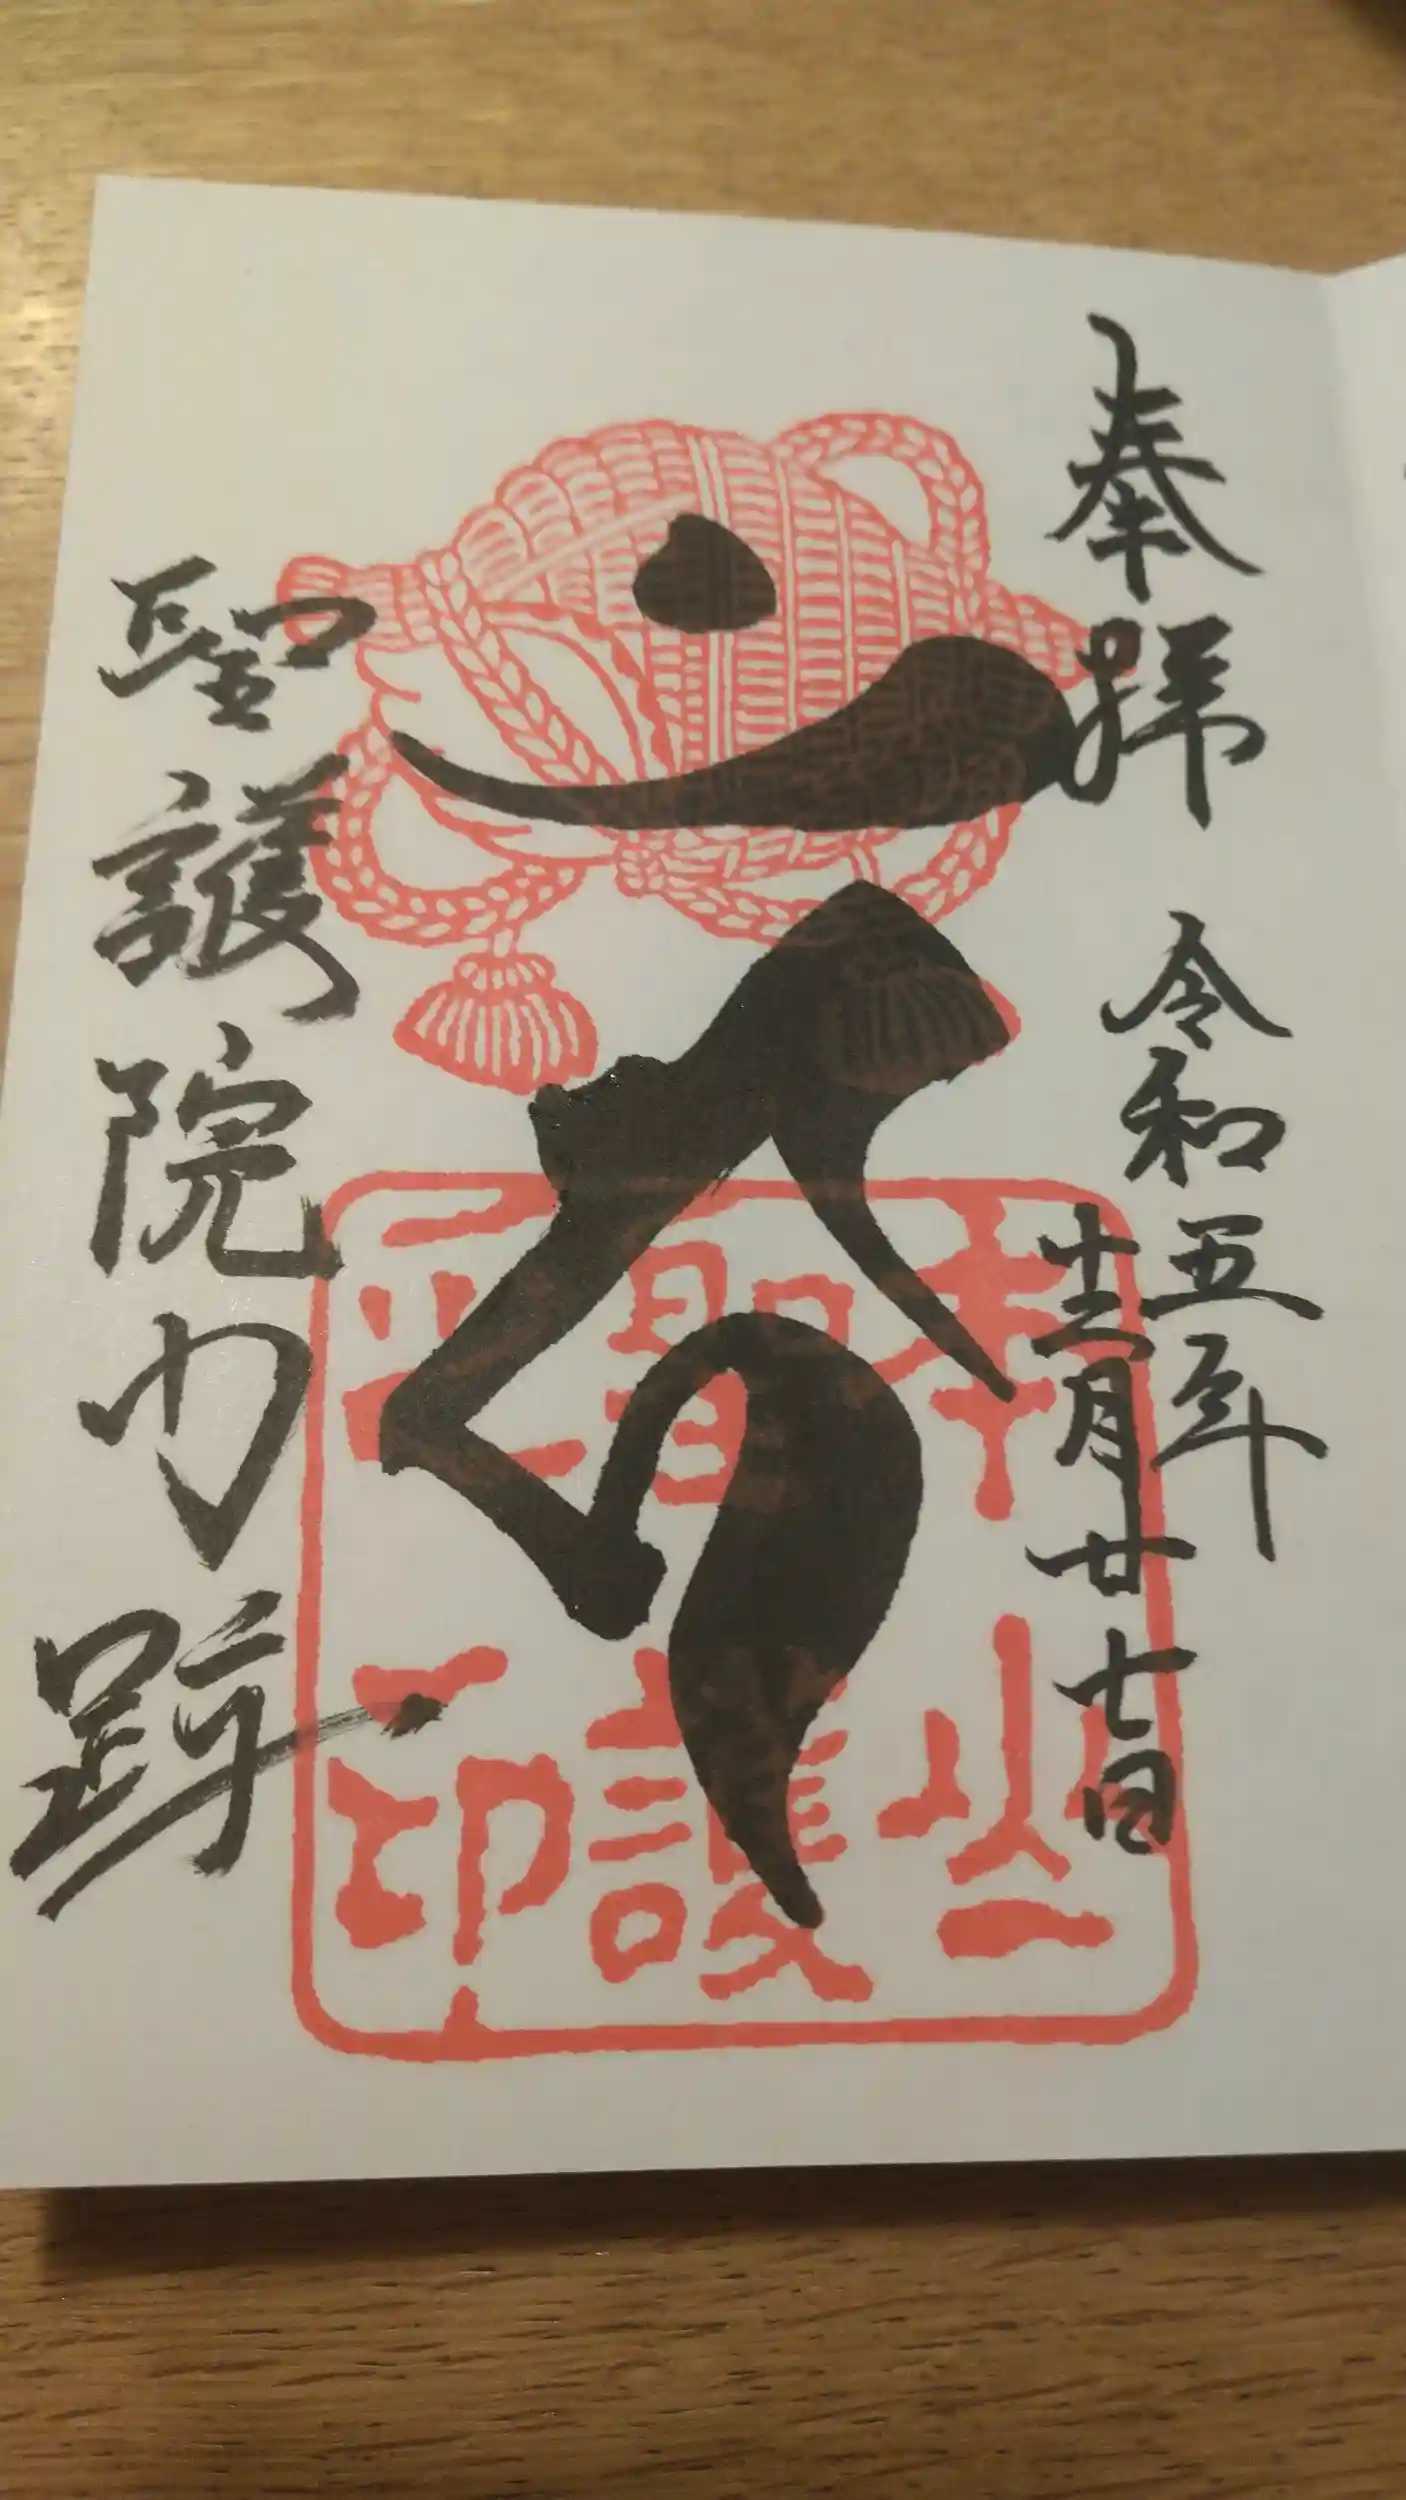 奉拝
令和五年
十二月廿七日
聖護院門跡
聖護
印